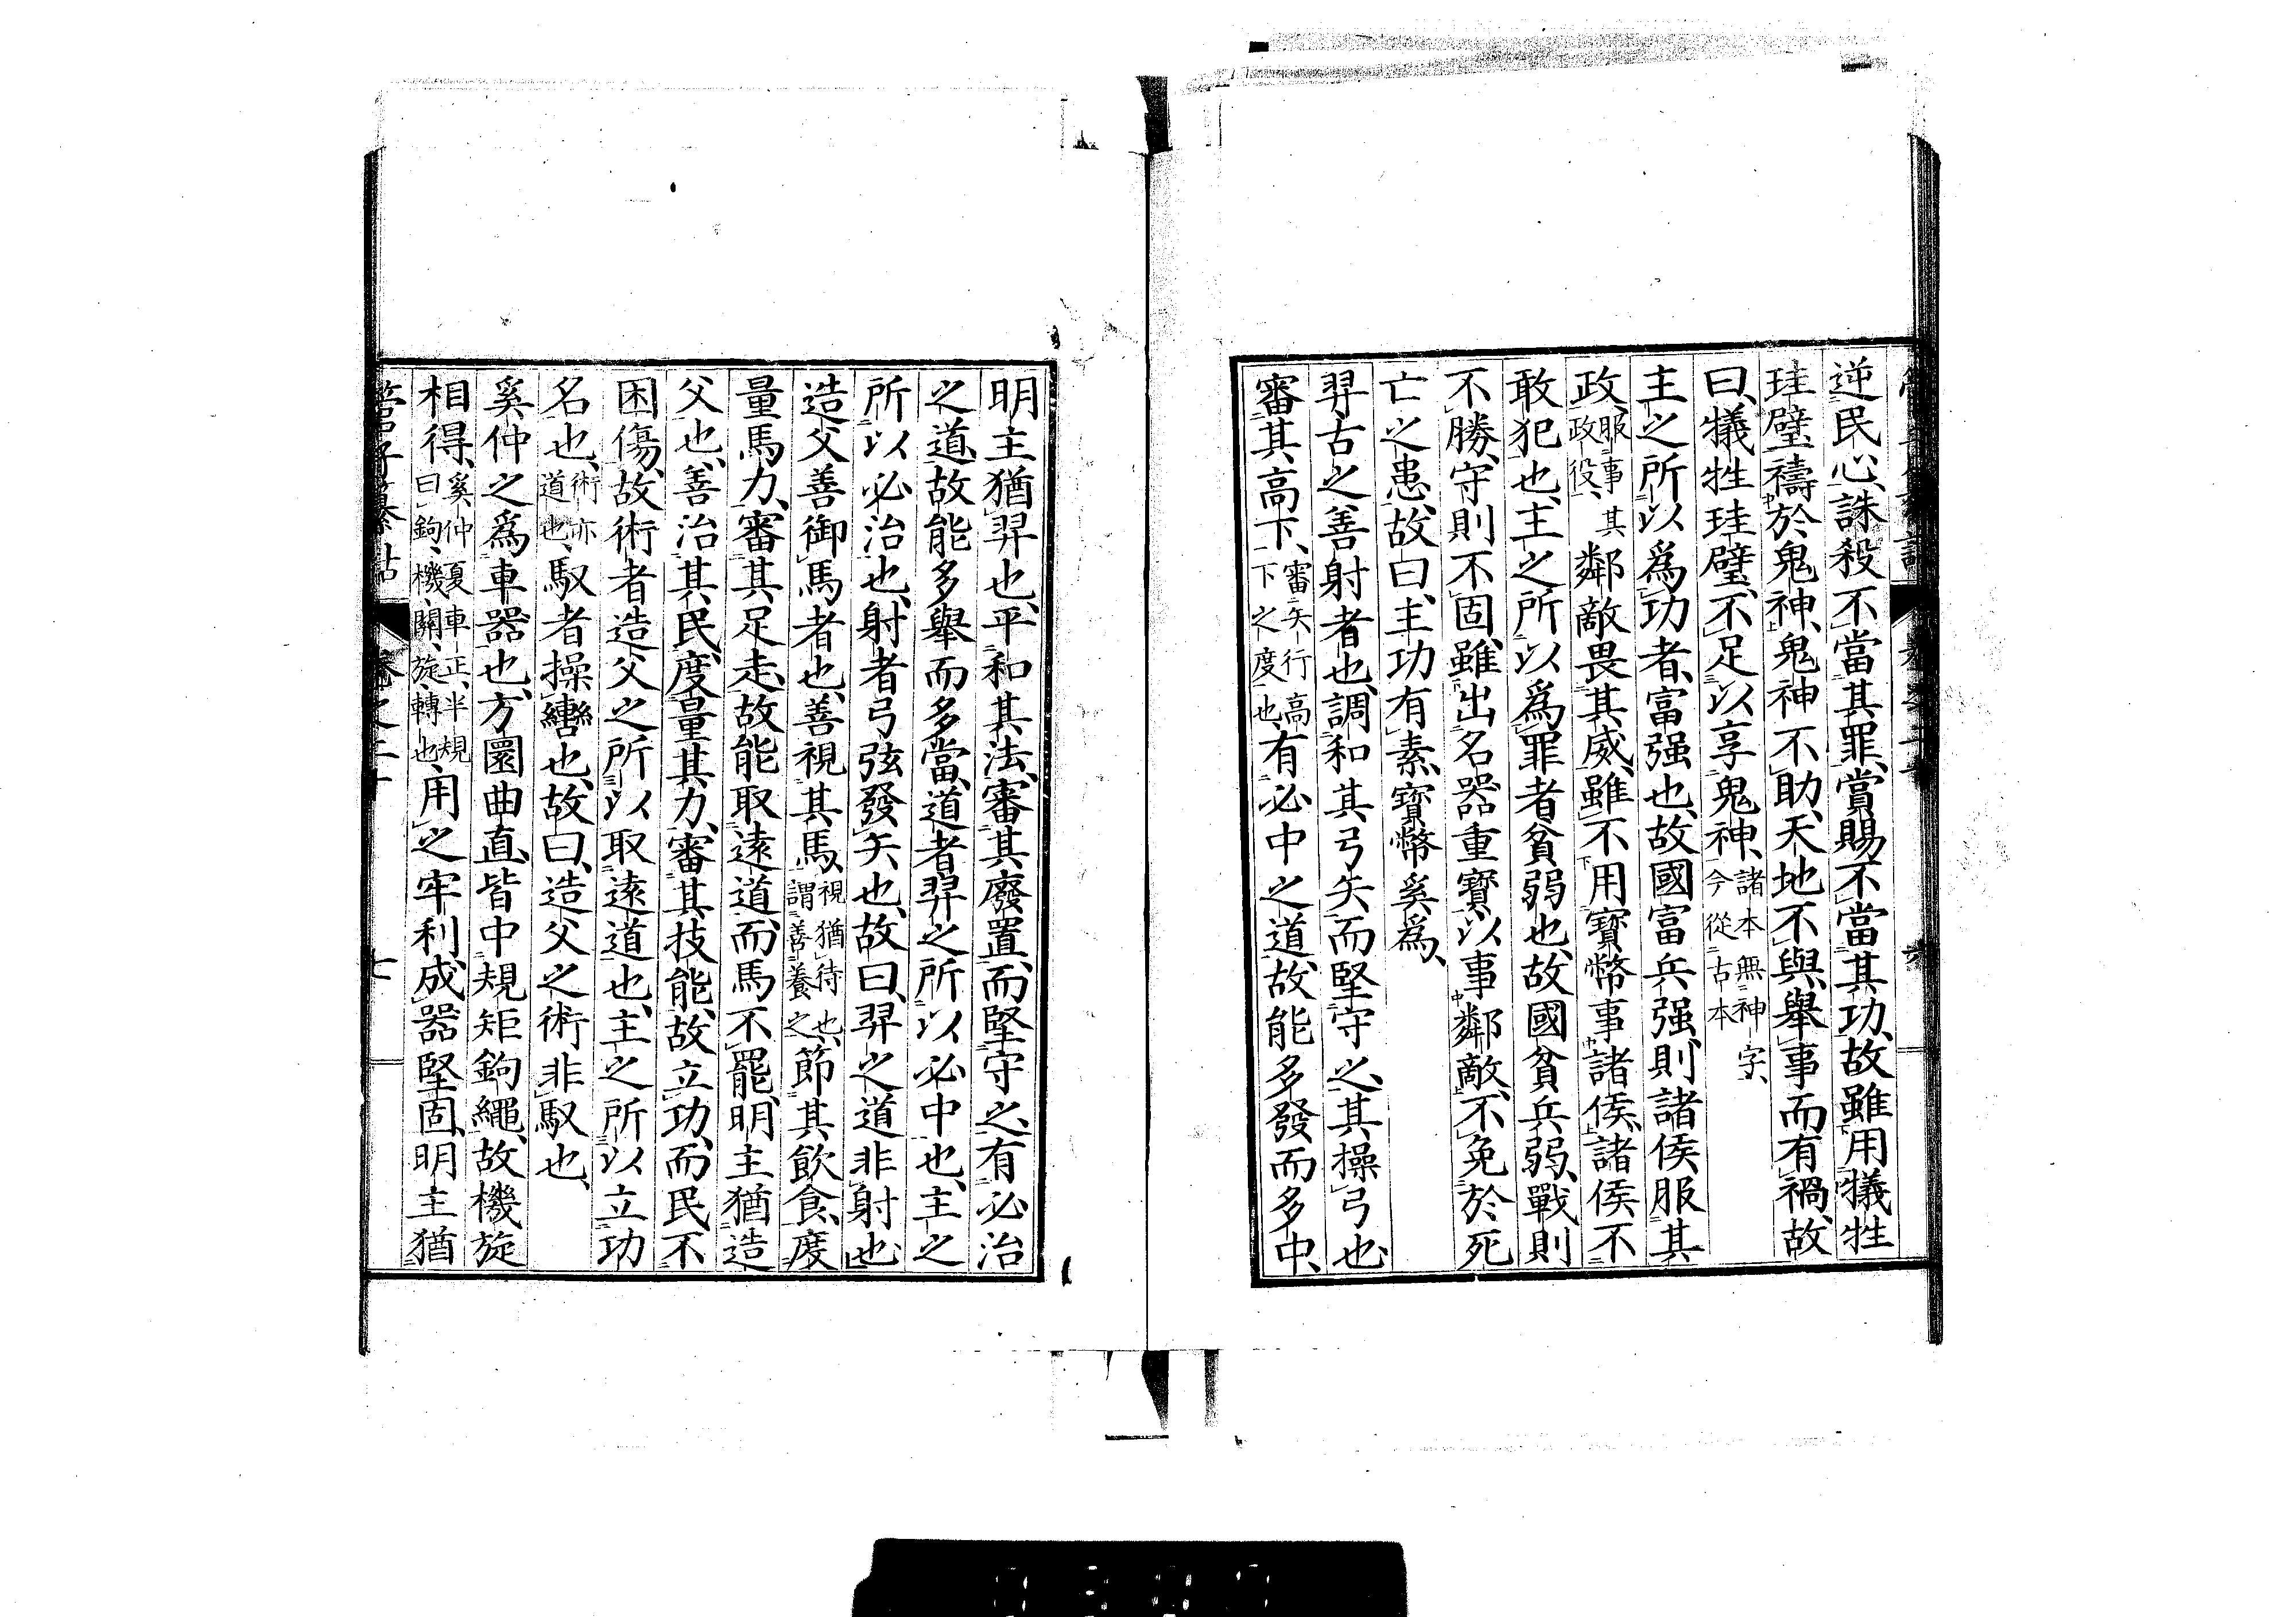 逆民心、誅殺不當其罪、賞賜不當其功、故雖用犧牲
珪璧禱於鬼神、鬼神不助、天地不與、舉事而有禍、故
曰、犧牲珪璧、不足以享鬼神、諸本無神字、今從古本
主之所以爲功者、富强也、故國富兵强、則諸侯服其
政、服事其政役、鄰敵畏其威、雖不用寳幣事諸侯、諸侯不
敢犯也、主之所以爲罪者貧弱也、故國貧兵弱、戰則
不勝、守則不固、雖出名器重寳以事鄰敵、不免於死
亡之患、故曰、主功有素、寳幣奚爲、
羿古之善射者也、調和其弓矢、而堅守之、其操弓也
審其高下、審矢行高下之度也、有必中之道、故能多發而多中、
明主猶羿也、平和其法、審其廢置、而堅守之、有必治
之道、故能多舉而多當、道者羿之所以必中也、主之
所以必治也、射者弓弦發矢也、故曰、羿之道非射也、
造父善御馬者也、善視其馬、視猶待也、謂善養之、節其飲食、度
量馬力、審其足走、故能取遠道、而馬不罷、明主猶造
父也、善治其民、度量其力、審其技能、故立功、而民不
困傷、故術者造父之所以取遠道也、主之所以立功
名也、術亦道也、馭者操轡也、故曰、造父之術非馭也、
奚仲之爲車器也、方圜曲直、皆中規矩鉤繩、故機旋
相得、奚仲夏車正、半規曰鉤、機、關、旋、轉也、用之牢利、成器堅固、明主猶
管子纂詁 卷之二十 七